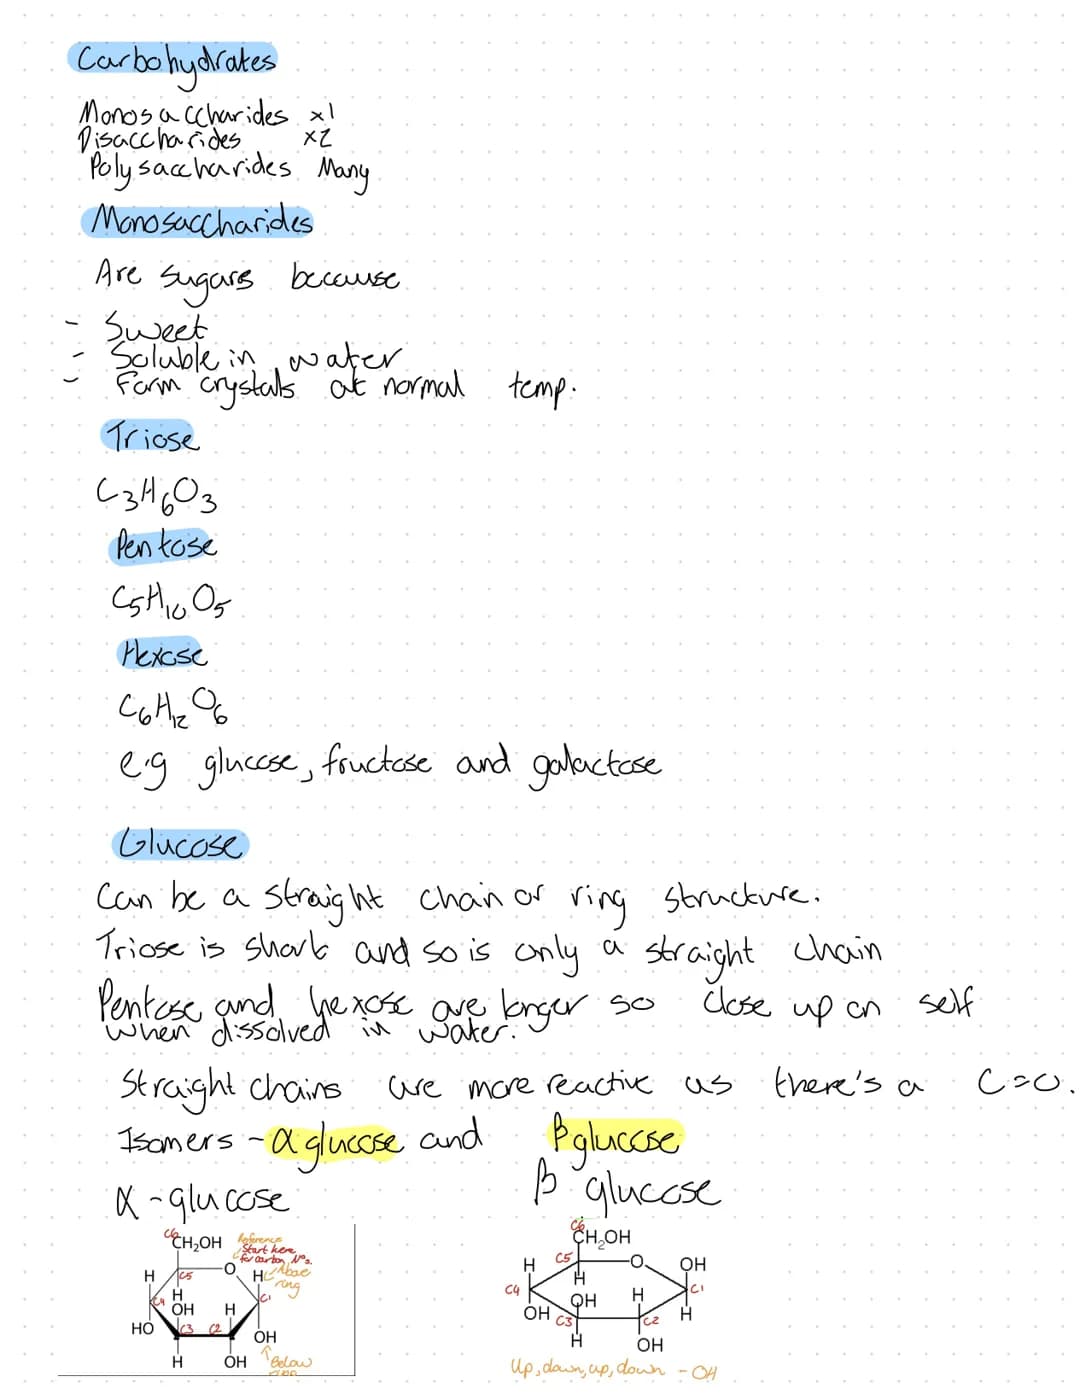 Carbohydrates
Monosaccharides x1
Disaccharides x2
Polysaccharides Many
Monosaccharides
Are sugars because
- Sweet
- Soluble in water
- Form crystals at normal temp.
Triose
C3H6O3
Pentose
C5H10O5
Hexose
C6H12O6
e.g glucose, fructose and galactose
Glucose
Can be a straight chain or ring structure.
Triose is short and so is only a straight chain
Pentose and hexose are longer so close up on self
when dissolved in water.
Straight chains are more reactive as there's a C=O.
Isomers - α glucose and β glucose
α - glucose
β glucose
C6
CH₂OH
Reference
Start here
for carbon Nos.
H
C5
O
H
Above
ring
C4
H
OH
H
C1
HO
C3
C2
OH
H
OH
Below
ring
C6
CH₂OH
H
C5
O
OH
C4
H
C1
OH
OH
H
H
C3
C2
H
OH
Up, down, up, down - OH